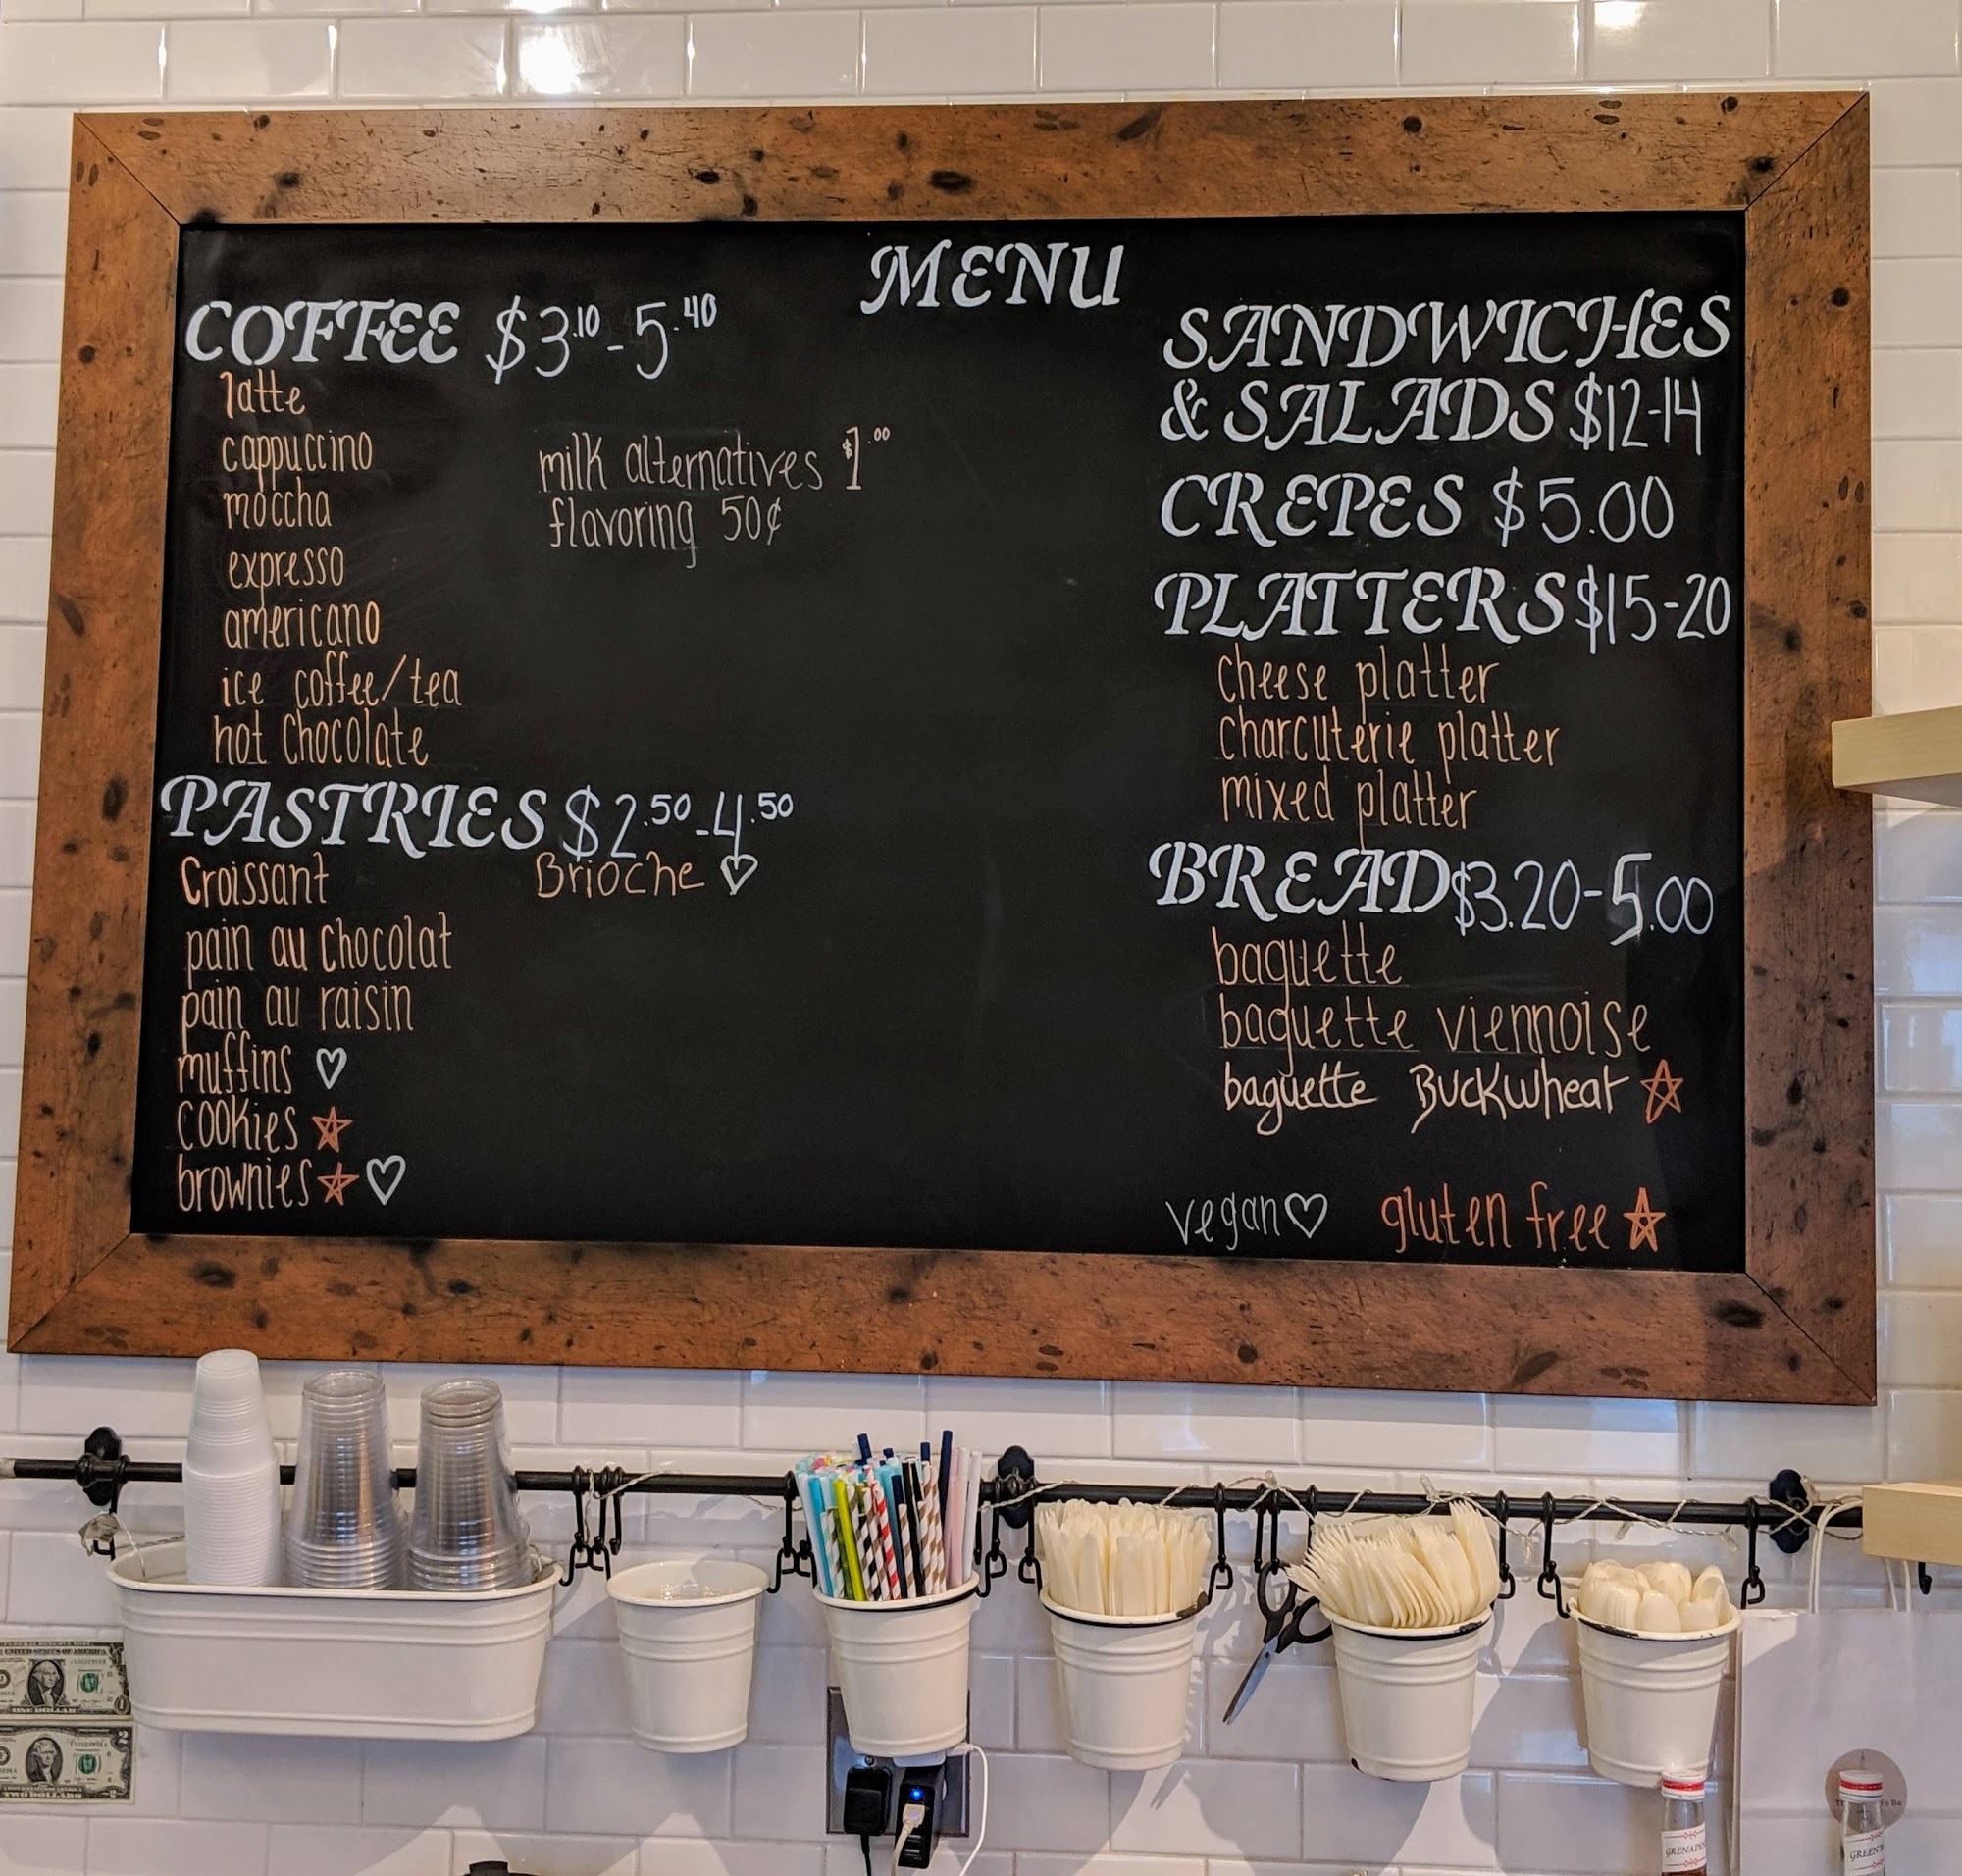 MENU
COFFEE $3.10-5.40
latte
cappuccino
moccha
expresso
americano
ice coffee/tea
hot chocolate
milk alternatives $1.00
flavoring 50¢
PASTRIES $2.50-4.50
Croissant
pain au chocolat
pain au raisin
muffins ♡
cookies ☆
brownies ☆ ♡
Brioche ♡
SANDWICHES
& SALADS $12-14
CREPES $5.00
PLATTERS $15-20
cheese platter
charcuterie platter
mixed platter
BREAD $3.20-5.00
baguette
baguette viennoise
baguette Buckwheat ☆
vegan ♡ gluten free ☆
ONE DOLLAR
2
TWO DOLLARS